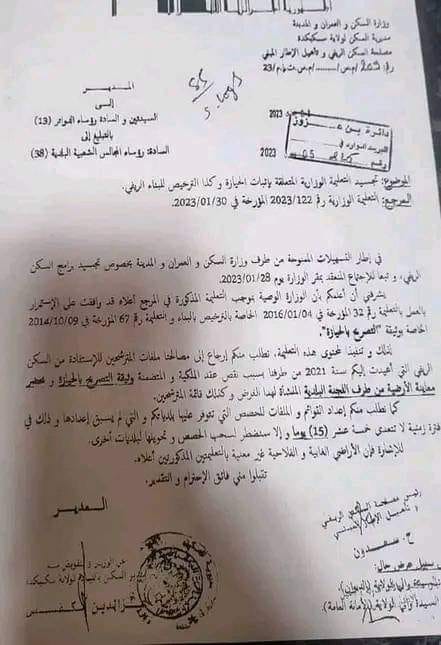 وزارة السكن و العمران و المدينة
مديرية السكن لولاية سكيكدة
مصلحة السكن الريفي و تأهيل الإطار المبني
المدير
إلى
السيدتين و السادة رؤساء الدوائر (13)
بالتبليغ إلى
السادة: رؤساء المجالس الشعبية البلدية (38)
2023
دائرة بن عزوز
البريد الوارد في
2023
رقم
الموضوع: تجسيد التعليمة الوزارية المتعلقة بإثبات الحيازة و كذا الترخيص للبناء الريفي.
المرجع: التعليمة الوزارية رقم 2023/122 المؤرخة في 2023/01/30.
في إطار التسهيلات الممنوحة من طرف وزارة السكن و العمران و المدينة بخصوص تجسيد برامج السكن
الريفي، و تبعا للإجتماع المنعقد بمقر الوزارة يوم 2023/01/28.
يشرفني أن أعلمكم بأن الوزارة الوصية بموجب التعليمة المذكورة في المرجع أعلاه قد وافقت على الإستمرار
بالعمل بالتعليمة رقم 32 المؤرخة في 2016/01/04 الخاصة بالترخيص بالبناء و التعليمة رقم 67 المؤرخة في 2014/10/09
الخاصة بوثيقة "التصريح بالحيازة".
لذلك و تنفيذا لمحتوى هذه التعليمة، نطلب منكم إرجاع إلى مصالحنا ملفات المترشحين للإستفادة من السكن
الريفي التي أعيدت إليكم سنة 2021 من طرفنا بسبب نقص عقد الملكية و المتضمنة وثيقة التصريح بالحيازة و محضر
معاينة الأرضية من طرف اللجنة البلدية المنشأة لهذا الغرض و كذلك قائمة المترشحين.
كما نطلب منكم إعداد القوائم و الملفات للحصص التي تتوفر عليها بلدياتكم و التي لم يسبق إعدادها و ذلك في
فترة زمنية لا تتعدى خمسة عشر (15) يوما و إلا سنضطر لسحبها الحصص و تحويلها لبلديات أخرى.
للإشارة فإن الأراضي الغابية و الفلاحية غير معنية بالتعليمتين المذكورتين أعلاه.
تقبلوا مني فائق الإحترام و التقدير.
المدير
عن الوزير و بتفويض منه
رئيس مصلحة السكن الريفي
و تأهيل الإطار المبني